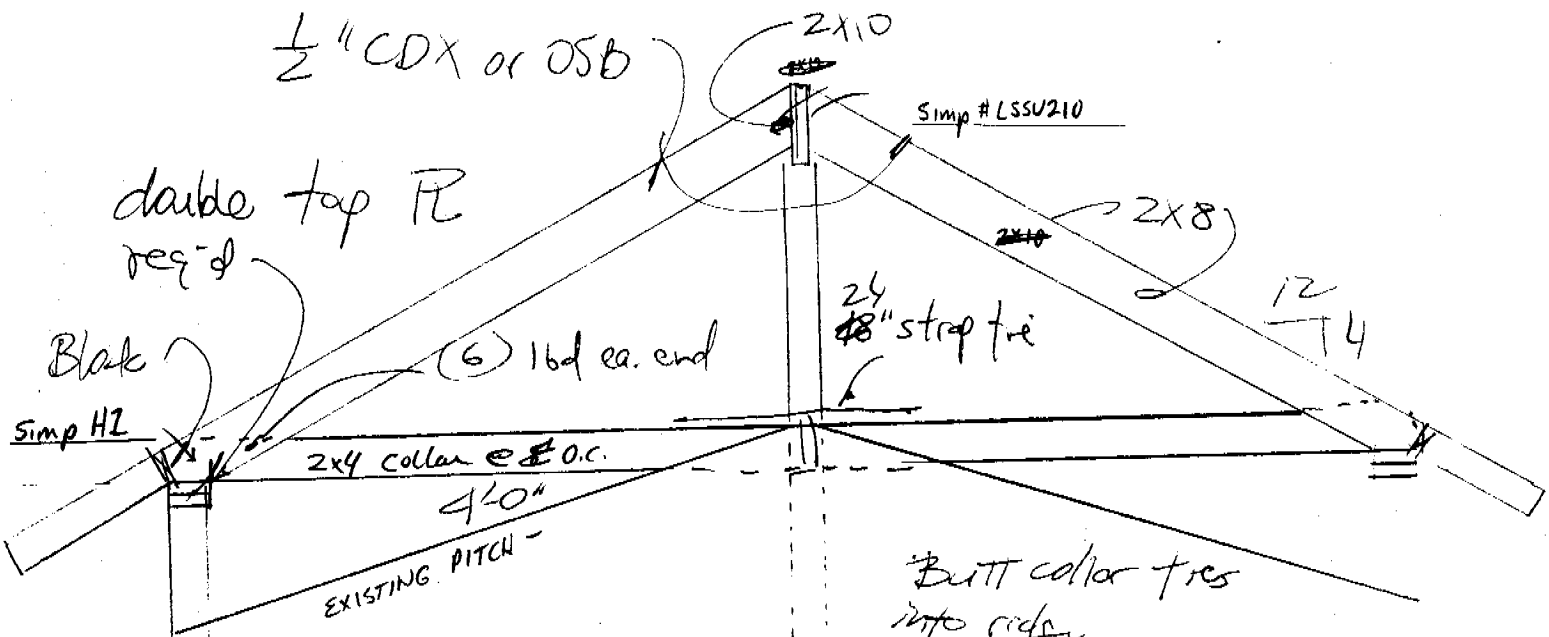 1/2" CDX or OSB
2X10
Simp #LSSU210
double top PL
req'd
2X8
2X10
12
4
24
18" strap tie
Block
(6) 16d ea. end
Simp H1
2x4 Collar @ O.C.
4'-0"
EXISTING PITCH -
Butt collar ties
into